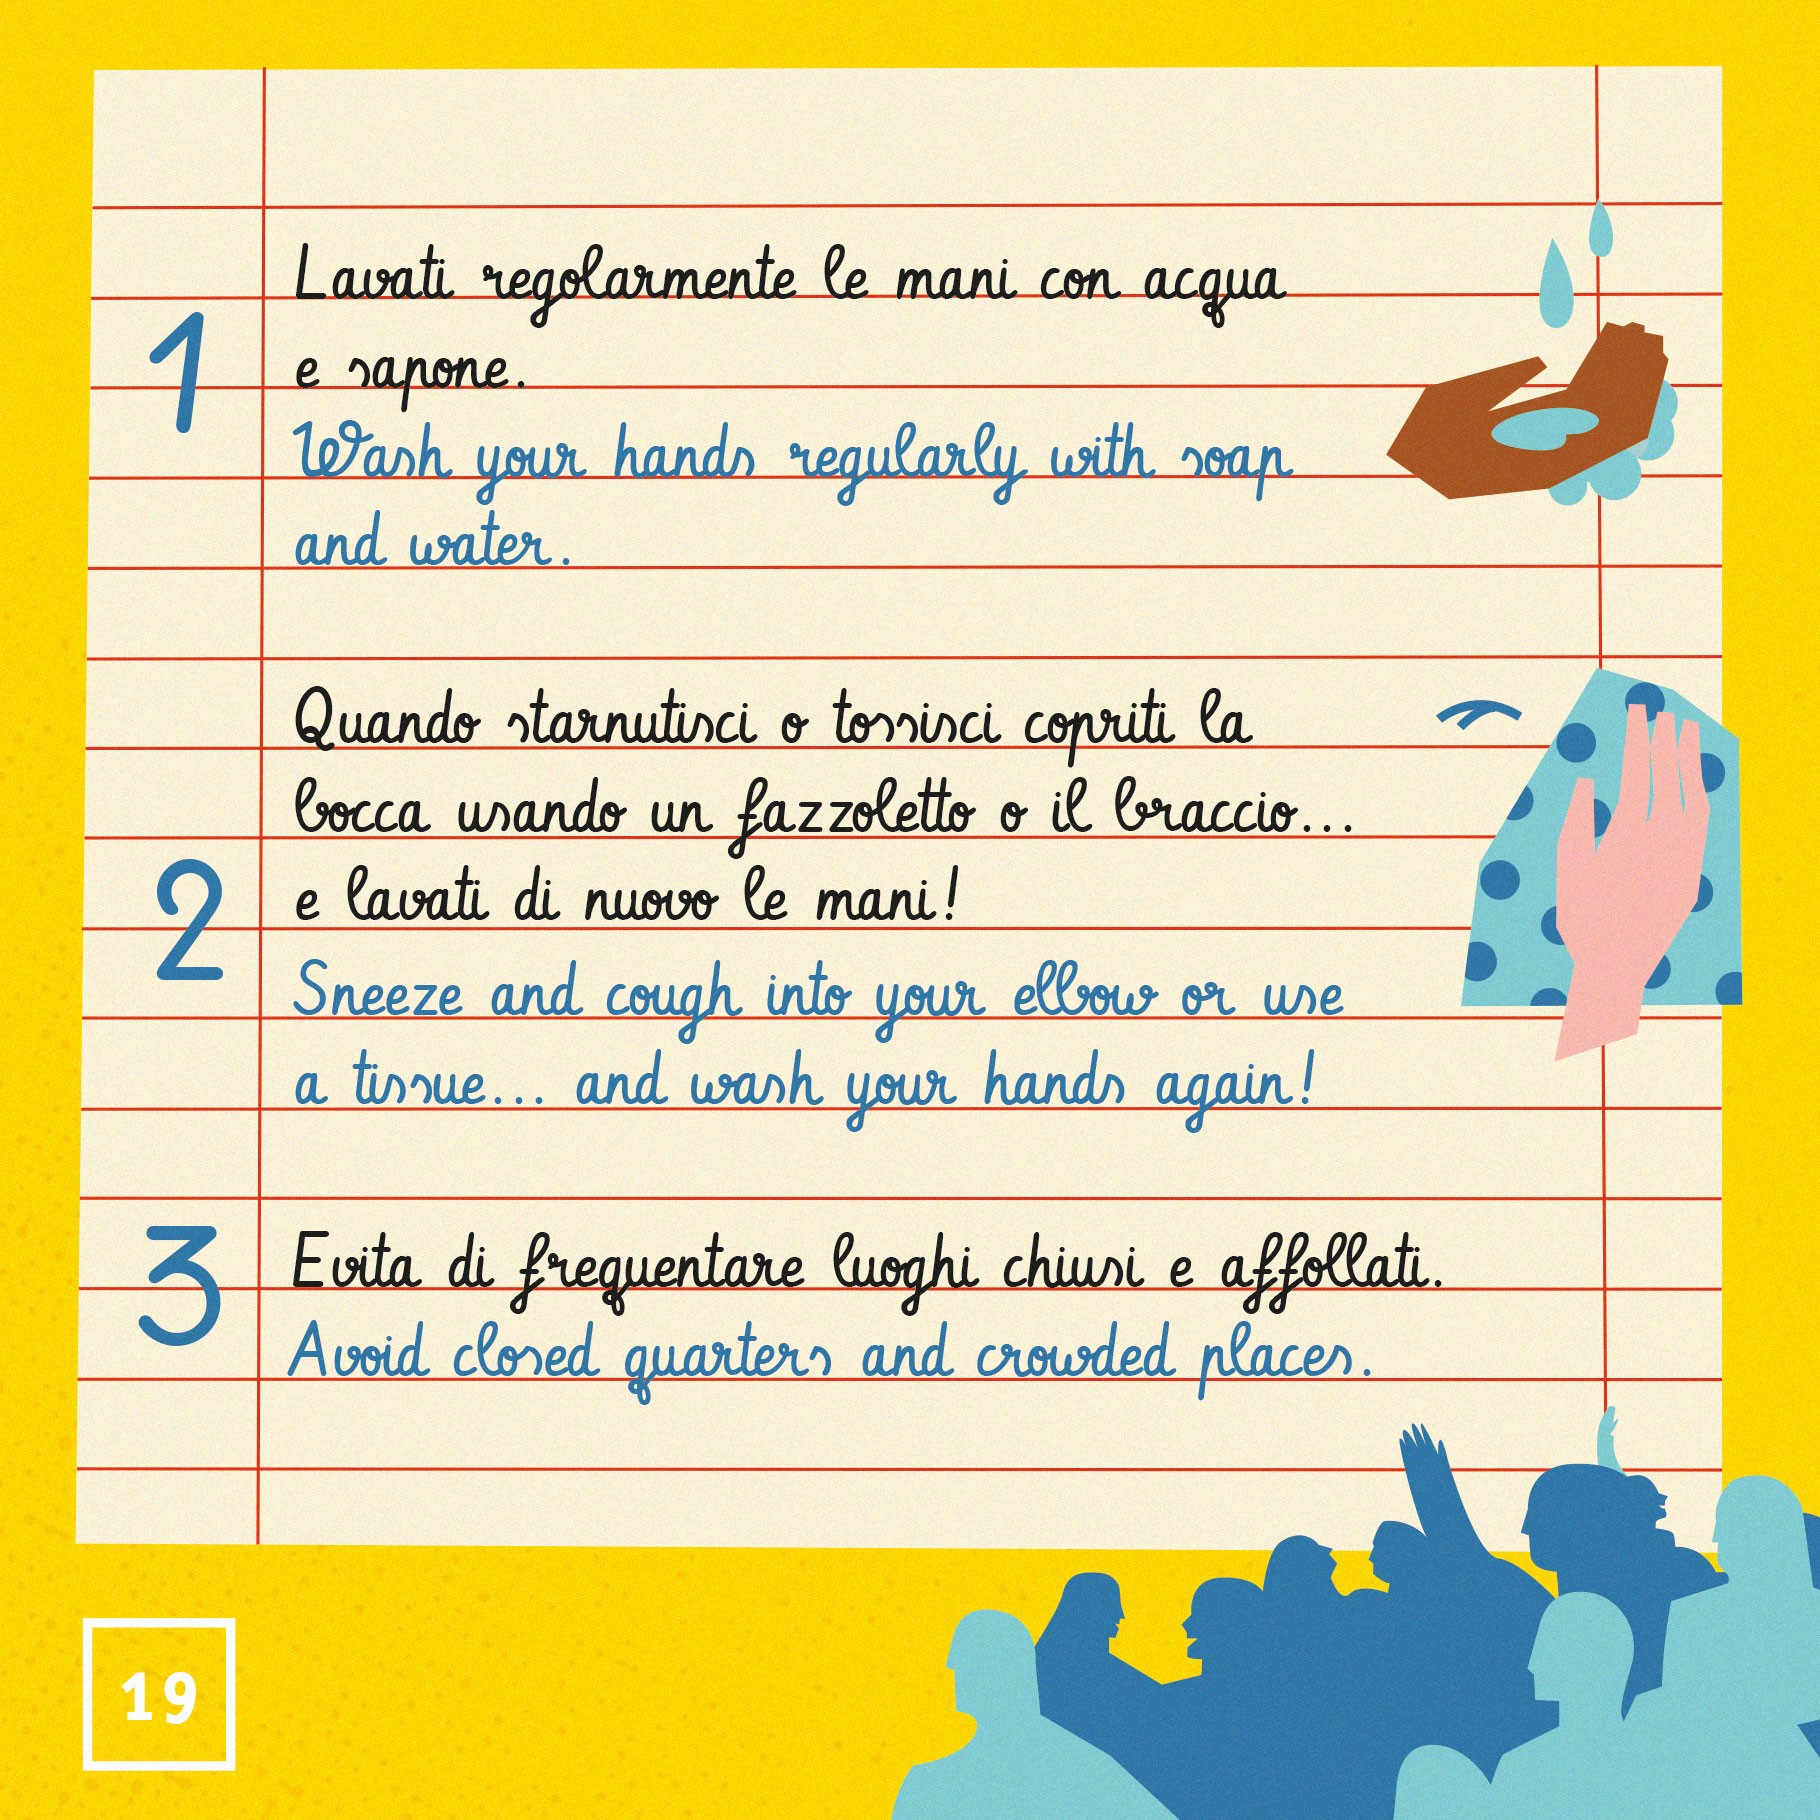 1
Lavati regolarmente le mani con acqua
e sapone.
Wash your hands regularly with soap
and water.
2
Quando starnutisci o tossisci copriti la
bocca usando un fazzoletto o il braccio...
e lavati di nuovo le mani!
Sneeze and cough into your elbow or use
a tissue... and wash your hands again!
3
Evita di frequentare luoghi chiusi e affollati.
Avoid closed quarters and crowded places.
19